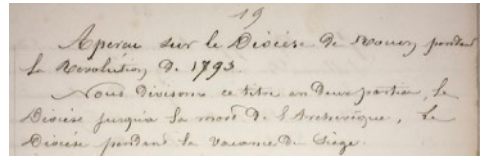 19
Aperçu sur le Diocèse de Rouen pendant
la Révolution de 1793.
Nous divisons ce titre en deux parties, le
Diocèse jusqu'à la mort de l'Archevêque, le
Diocèse pendant la vacance du Siège.